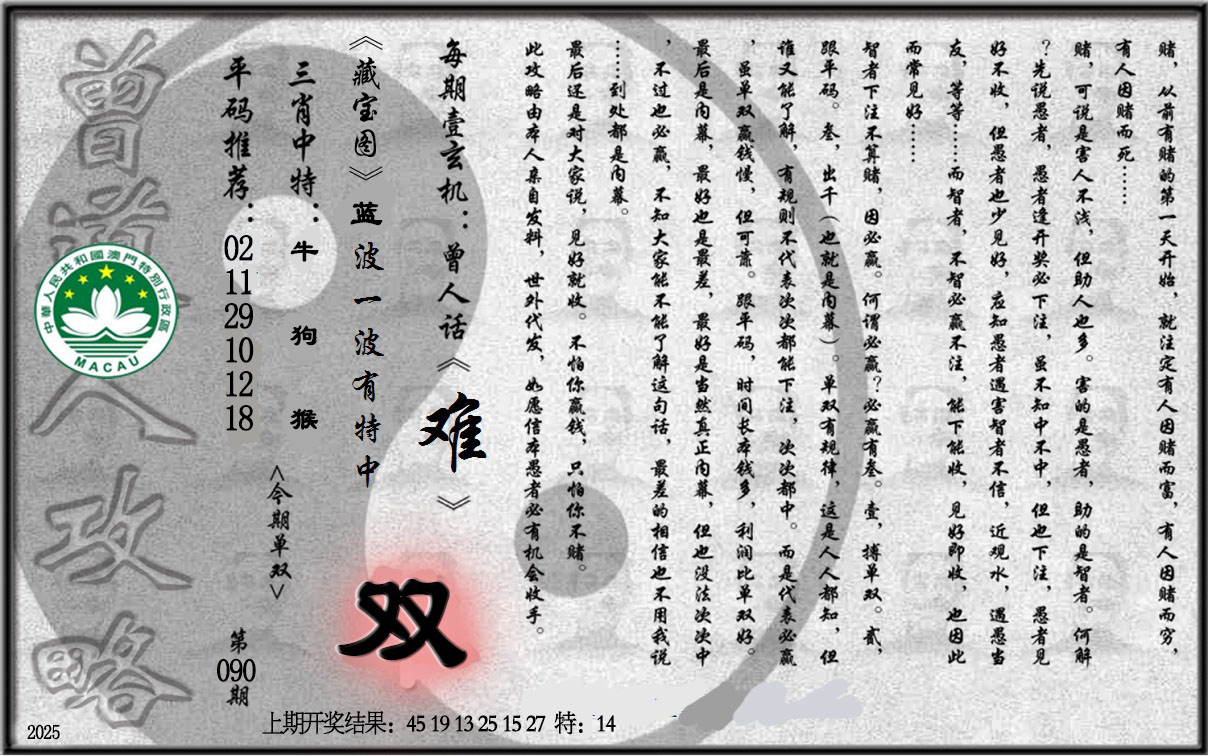 赌，从前有赌的第一天开始，就注定有人因赌而富，有人因赌而穷，
有人因赌而死……
赌，可说是害人不浅，但助人也多。害的是愚者，助的是智者。何解
？先说愚者，愚者逢开奖必下注，虽不知中不中，但也下注，愚者见
好不收，但愚者也少见好，应知愚者遇害智者不信，近观水，遇愚当
友，等等……而智者，不智必赢不注，能下能收，见好即收，也因此
而常见好……
智者下注不算赌，因必赢。何谓必赢？必赢有叁。壹，搏单双。贰，
跟平码。叁，出千（也就是内幕）。单双有规律，这是人人都知，但
谁又能了解，有规则不代表次次都能下注，次次都中。而是代表必赢
，虽单双赢钱慢，但可靠。跟平码，时间长本钱多，利润比单双好。
最后是内幕，最好也是最差，最好是当然真正内幕，但也没法次次中
，不过也必赢，不知大家能不能了解这句话，最差的相信也不用我说
……到处都是内幕。
最后还是对大家说，见好就收。不怕你赢钱，只怕你不赌。
此攻略由本人亲自发料，世外代发，如愿信本愚者必有机会收手。
每期壹玄机：曾人话《难》
《藏宝图》蓝波一波有特中
双
三肖中特：牛 狗 猴
<今期单双>
平码推荐：02 11 29 10 12 18
第090期
曾道人攻略
中華人民共和國澳門特別行政區
MACAU
上期开奖结果：45 19 13 25 15 27 特：14
2025